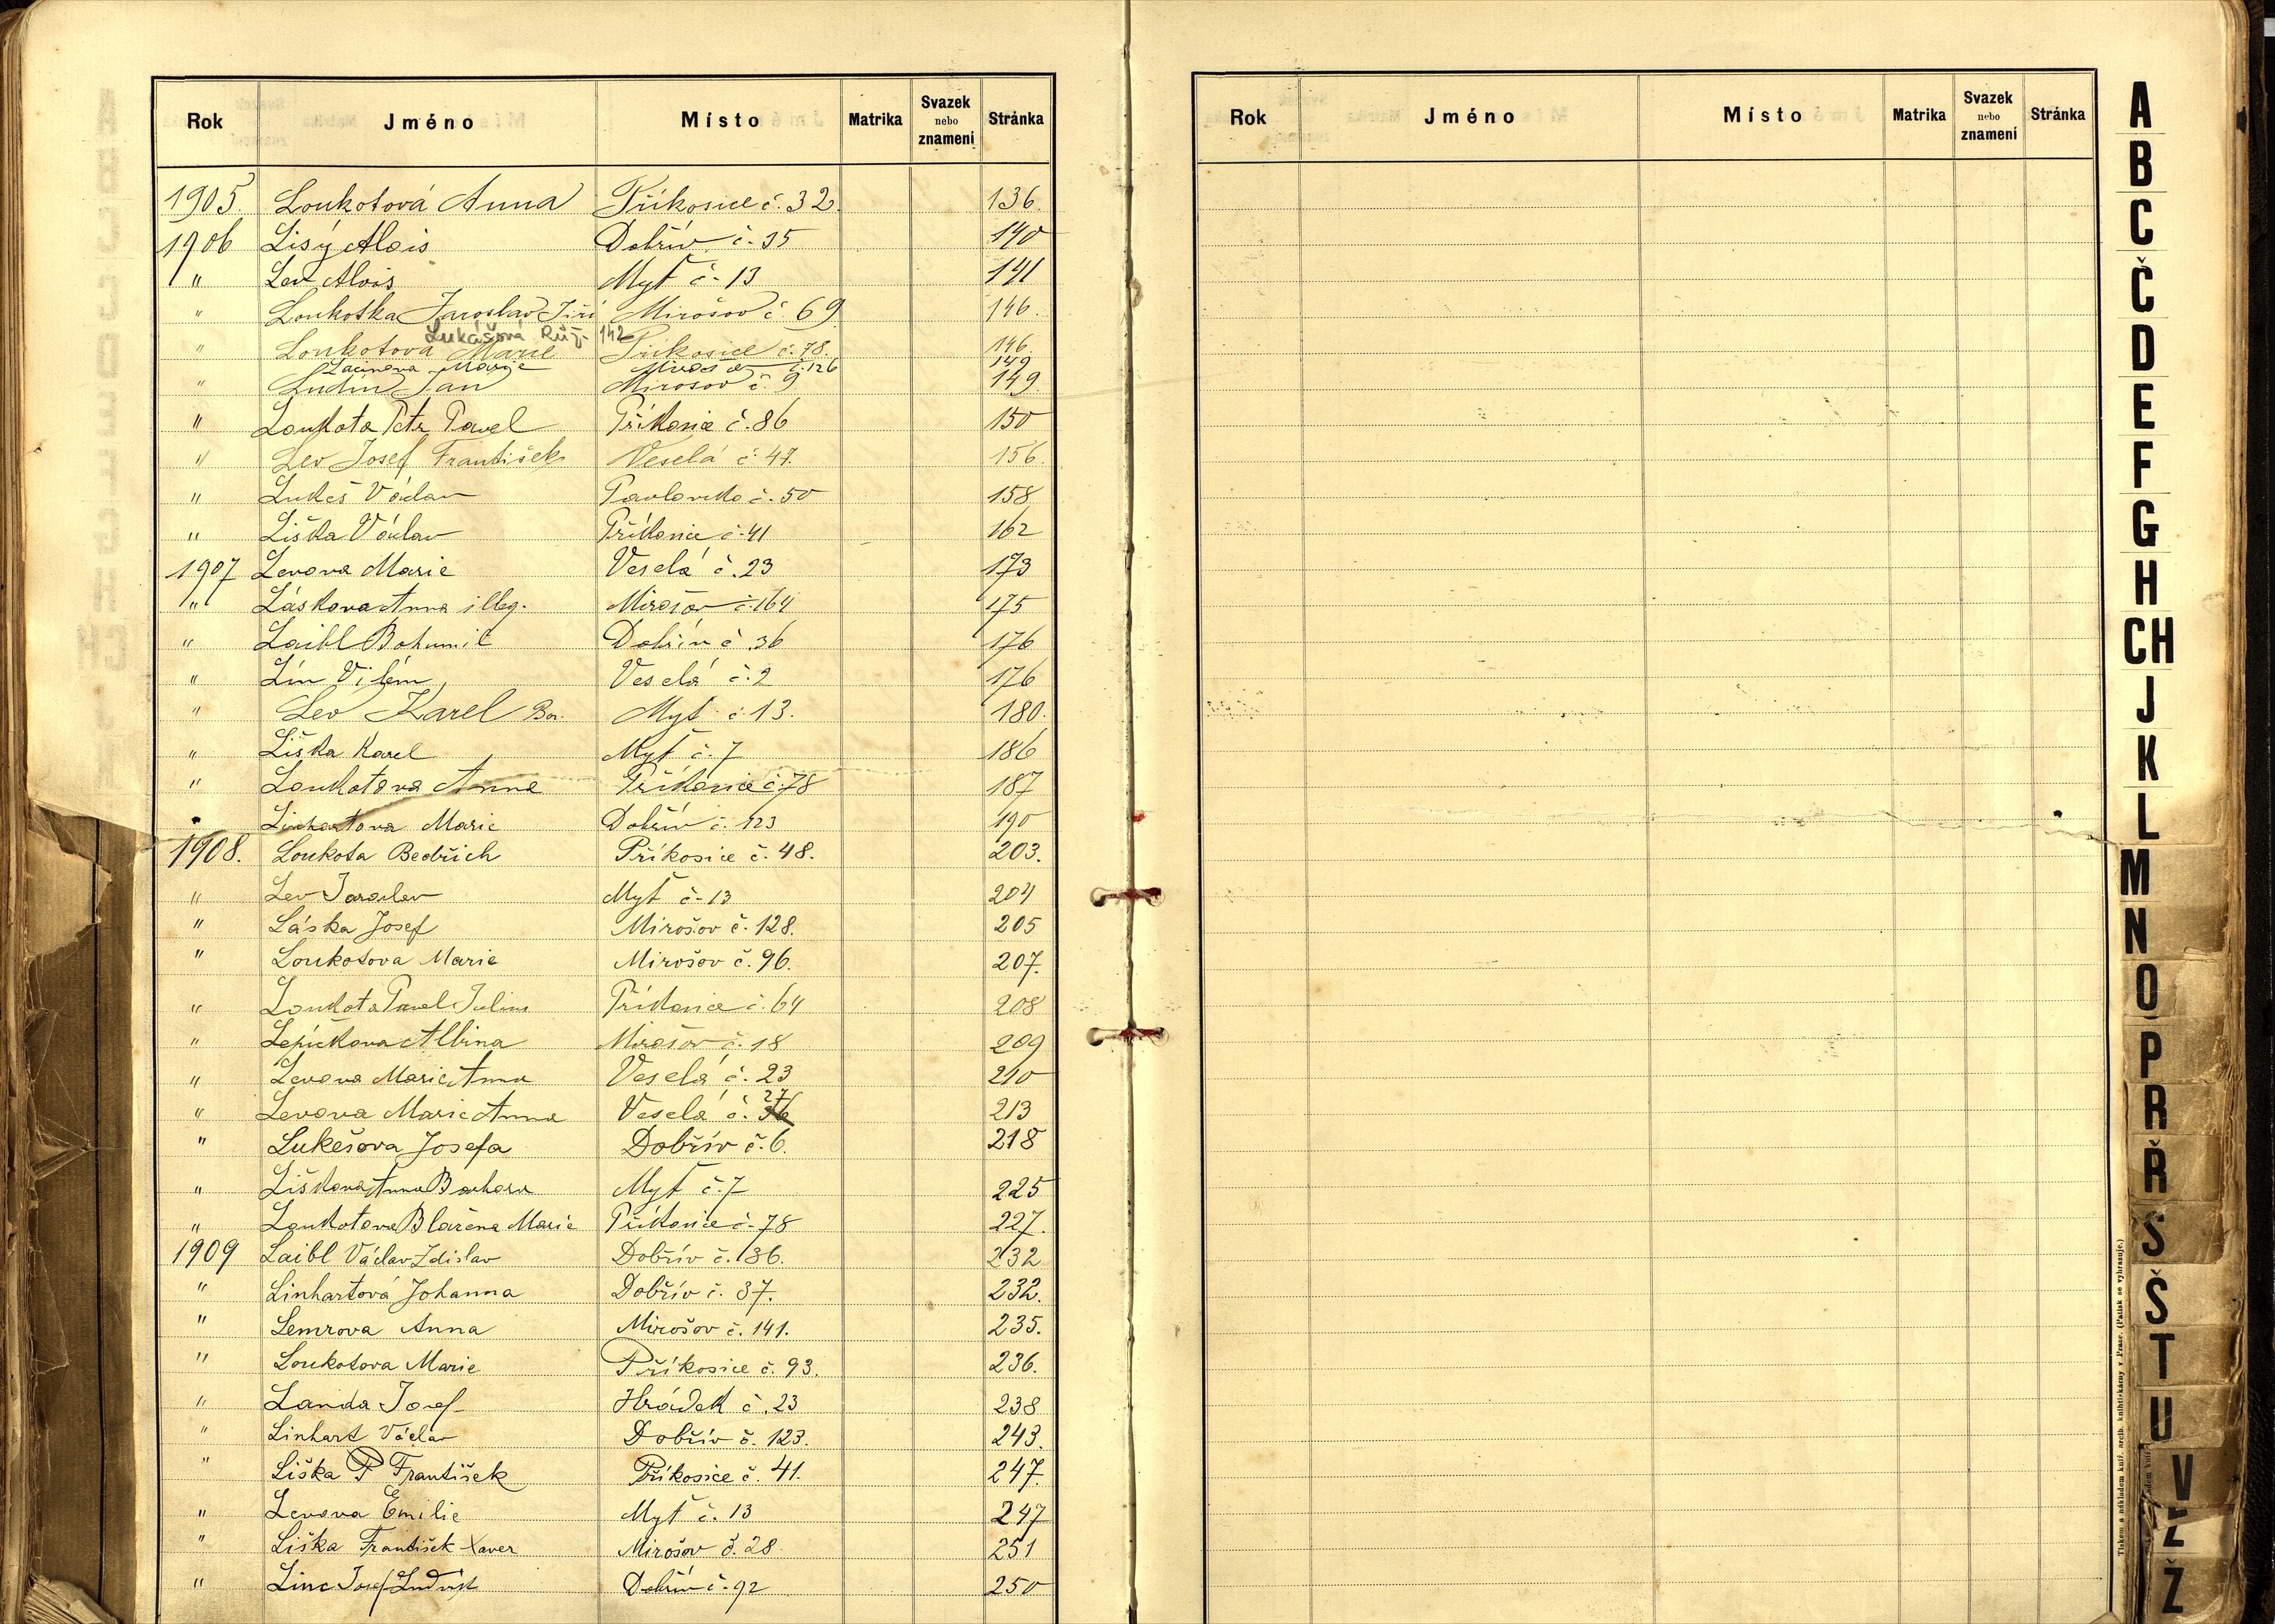 Rok Jméno Místo Matrika Svazek nebo znamení Stránka
1905. Loukotová Anna Příkosice č. 32. 136.
1906 Lisý Alois Dobřív č. 35 140
" Lev Alois Myť č. 13 141
" Loukotka Jaroslav Jiří Mirošov č. 69 146.
Lukášová Růž. 142
" Loukotova Marie Příkosice č. 78. 146
Lacinova Marie Mirošov č. 126 149
" Ludin Jan Mirošov č. 9. 149.
" Loukota Petr Pavel Příkosice č. 86 150
" Lev Josef František Veselá č. 47. 156.
" Lukeš Václav Pavlovsko č. 50 158
" Liška Václav Příkosice č. 41 162
1907 Levova Marie Veselá č. 23 173
" Láskova Anna illeg. Mirošov č. 164 175
" Laibl Bohumil Dobřív č. 36 176
" Lín Vilém Veselá č. 2 176
" Lev Karel Bor. Myť č. 13. 180.
" Liška Karel Myť č. 7 186
" Loukotova Anna Příkosice č. 78 187
Linhartova Marie Dobřív č. 123 190
1908. Loukota Bedřich Příkosice č. 48. 203.
" Lev Jaroslav Myť č. 13 204
" Láska Josef Mirošov č. 128. 205
" Loukotova Marie Mirošov č. 96. 207.
" Loukota Pavel Julius Příkosice č. 64 208
" Lepičkova Albina Mirošov č. 18 209
" Levova Marie Anna Veselá č. 23 210
" Levova Marie Anna Veselá č. 27 36 213
" Lukešova Josefa Dobřív č. 6. 218
" Liškova Anna Barbora Myť č. 7 225
" Loukotova Blažena Marie Příkosice č. 78 227.
1909 Laibl Václav Zdislav Dobřív č. 136. 232
" Linhartová Johanna Dobřív č. 37. 232.
" Lemrova Anna Mirošov č. 141. 235.
" Loukotova Marie Příkosice č. 93. 236.
" Landa Josef Hrádek č. 23 238
" Linhart Václav Dobřív č. 123. 243.
" Liška P František Příkosice č. 41. 247.
" Levova Emilie Myť č. 13 247
" Liška František Xaver Mirošov č. 28 251
" Linc Josef Ludvík Dobřív č. 92 250
Rok Jméno Místo Matrika Svazek nebo znamení Stránka
A
B
C
Č
D
E
F
G
H
CH
J
K
L
M
N
O
P
R
Ř
S
Š
T
U
V
Z
Ž